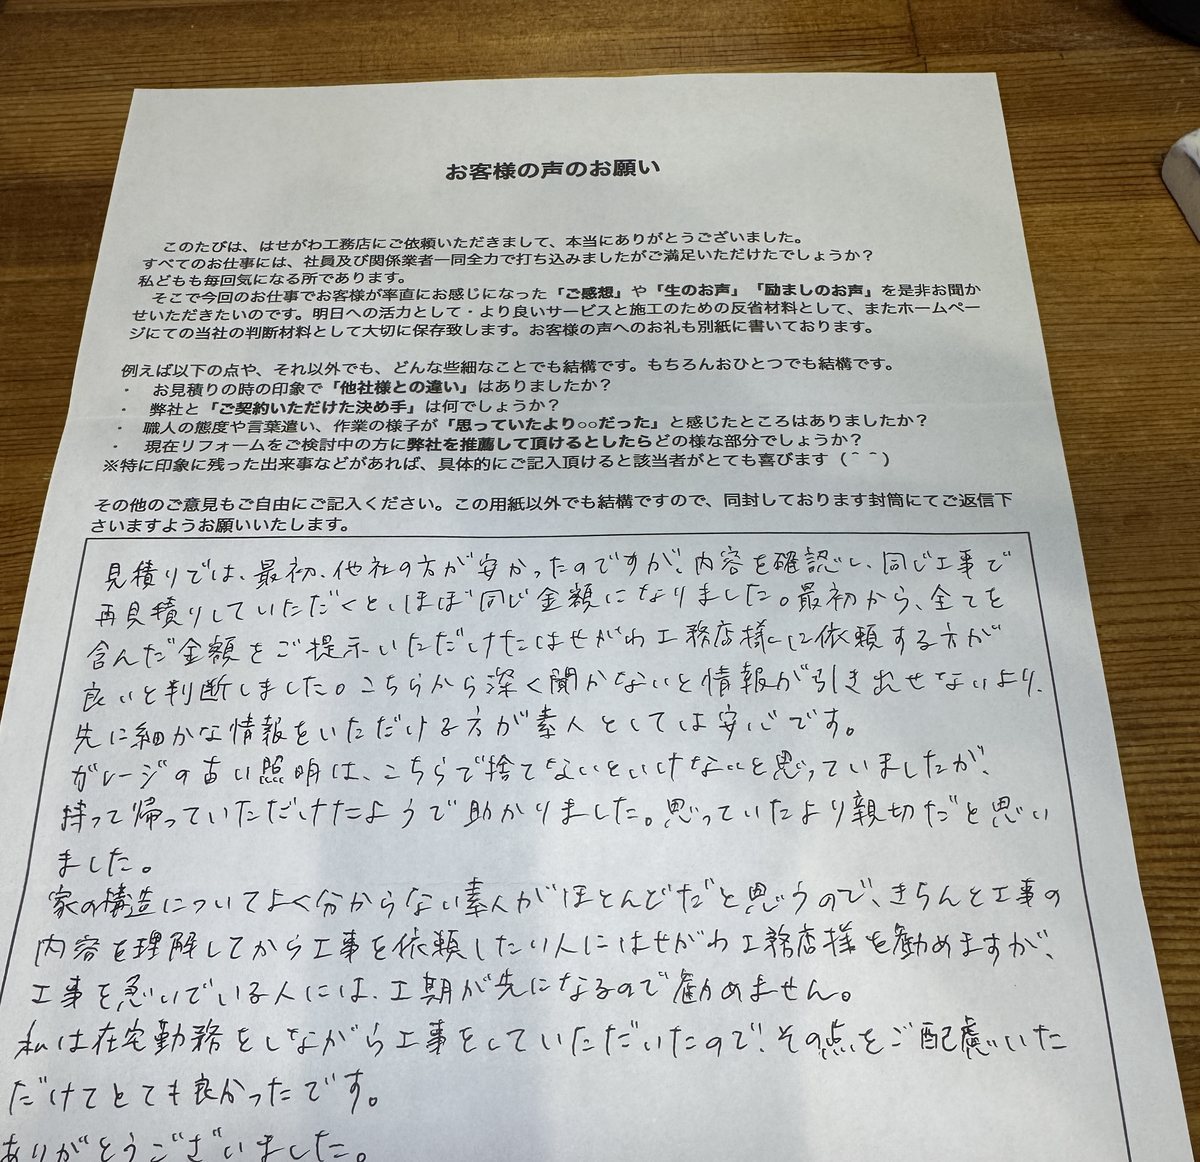 お客様の声のお願い
このたびは、はせがわ工務店にご依頼いただきまして、本当にありがとうございました。
すべてのお仕事には、社員及び関係業者一同全力で打ち込みましたがご満足いただけたでしょうか？
私どもも毎回気になる所であります。
そこで今回のお仕事でお客様が率直にお感じになった「ご感想」や「生のお声」「励ましのお声」を是非お聞か
せいただきたいのです。明日への活力として・より良いサービスと施工のための反省材料として、またホームペー
ジにての当社の判断材料として大切に保存致します。お客様の声へのお礼も別紙に書いております。
例えば以下の点や、それ以外でも、どんな些細なことでも結構です。もちろんおひとつでも結構です。
・ お見積りの時の印象で「他社様との違い」はありましたか？
・ 弊社と「ご契約いただけた決め手」は何でしょうか？
・ 職人の態度や言葉遣い、作業の様子が「思っていたより○○だった」と感じたところはありましたか？
・ 現在リフォームをご検討中の方に弊社を推薦して頂けるとしたらどの様な部分でしょうか？
※特に印象に残った出来事などがあれば、具体的にご記入頂けると該当者がとても喜びます（＾＾）
その他のご意見もご自由にご記入ください。この用紙以外でも結構ですので、同封しております封筒にてご返信下
さいますようお願いいたします。
見積りでは、最初、他社の方が安かったのですが、内容を確認し、同じ工事で
再見積りしていただくとほぼ同じ金額になりました。最初から、全てを
含んだ金額をご提示いただけたはせがわ工務店様に依頼する方が
良いと判断しました。こちらから深く聞かないと情報が引き出せないより、
先に細かな情報をいただける方が素人としては安心です。
ガレージの古い照明は、こちらで捨てないといけないと思っていましたが、
持って帰っていただけたようで助かりました。思っていたより親切だと思い
ました。
家の構造についてよく分からない素人がほとんどだと思うので、きちんと工事の
内容を理解してから工事を依頼したい人にはせがわ工務店様を勧めますが、
工事を急いでいる人には、工期が先になるので勧めません。
私は在宅勤務をしながら工事をしていただいたので、その点をご配慮いた
だけてとても良かったです。
ありがとうございました。